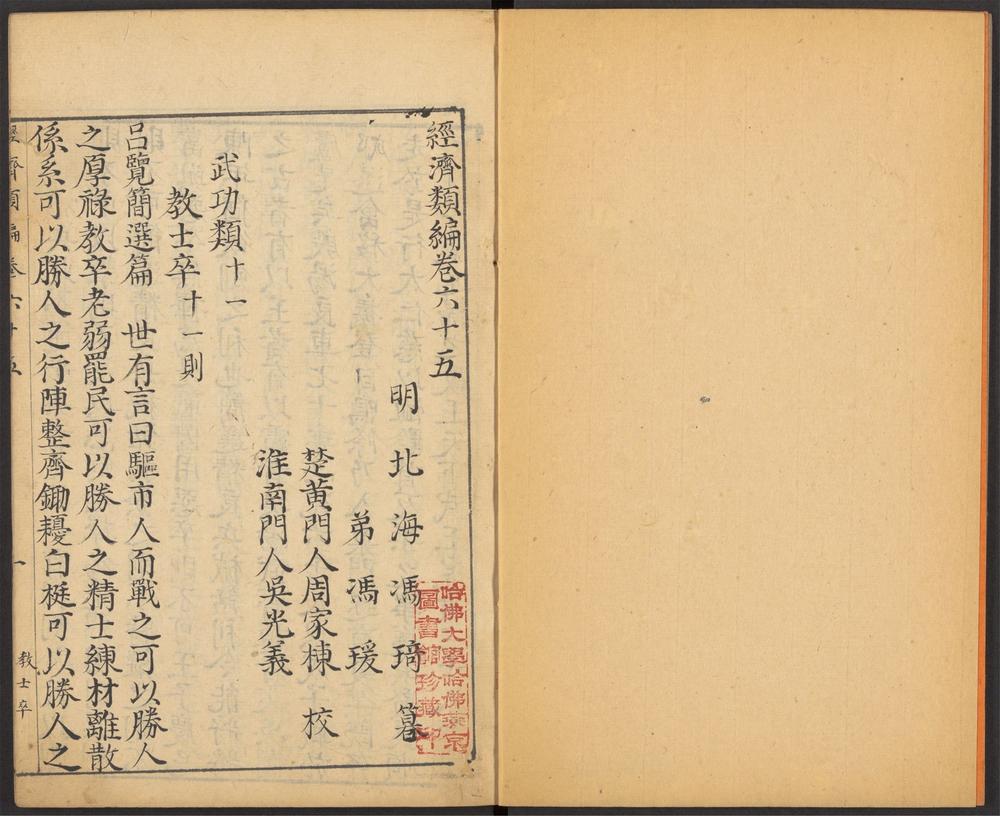 經濟類編卷六十五
明北海馮琦纂
弟馮瑗
楚黃門人周家棟校
淮南門人吳光義
武功類十一
教士卒十一則
呂覽簡選篇 世有言曰驅市人而戰之可以勝人
之厚祿教卒老弱罷民可以勝人之精士練材離散
係系可以勝人之行陣整齊鋤耰白梃可以勝人之
經濟類編卷六十五 一 教士卒
哈佛大學哈佛燕京
圖書館珍藏印